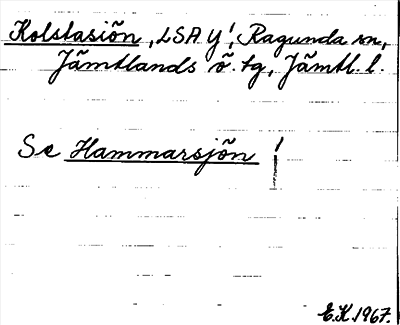 Kolstasjön, LSA y!, Ragunda sn,
Jämtlands ö. tg, Jämtl. l.
Se Hammarsjön !
E.K. 1967.